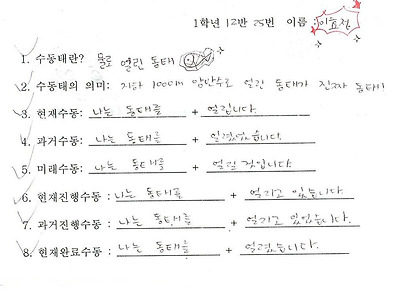 1학년 12반 25번 이름 : 이효정
1. 수동태란? 물로 얼린 동태
2. 수동태의 의미: 지하 100m 암반수로 얼린 동태가 진짜 동태!
3. 현재수동: 나는 동태를 + 얼립니다.
4. 과거수동: 나는 동태를 + 얼렸었습니다.
5. 미래수동: 나는 동태를 + 얼릴 것입니다.
6. 현재진행수동 : 나는 동태를 + 얼리고 있습니다.
7. 과거진행수동 : 나는 동태를 + 얼리고 있었습니다.
8. 현재완료수동 : 나는 동태를 + 얼렸습니다.